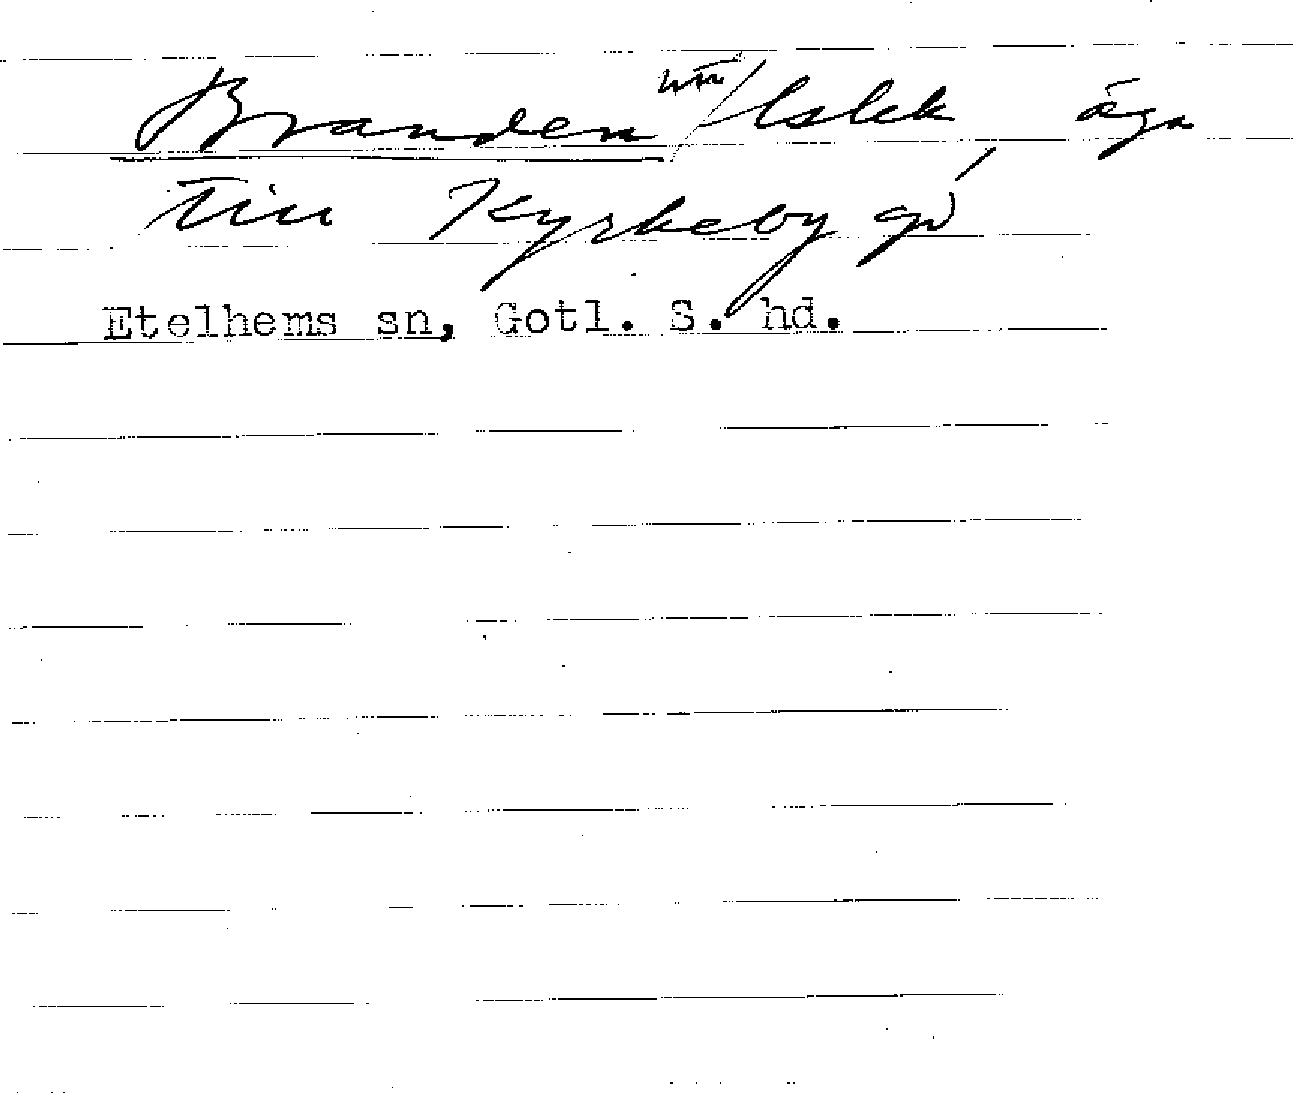 Branden / lslek äga
till Kyrkeby gd
Etelhems sn, Gotl. S. hd.